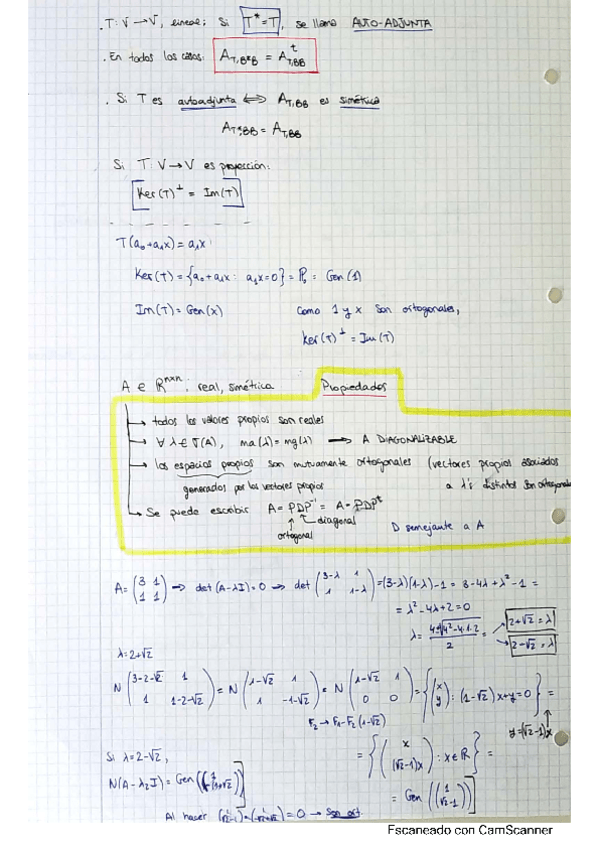 . T: V → V, lineal; Si T* = T, se llama AUTO-ADJUNTA
. En todos los casos: A_{T*,BB} = A^t_{T,BB}
. Si T es autoadjunta ⟺ A_{T,BB} es simétrica
A_{T*,BB} = A_{T,BB}
Si T: V → V es proyección:
Ker(T)^⊥ = Im(T)
T(a₀+a₁x) = a₁x:
Ker(T) = {a₀+a₁x : a₁x=0} = P₀ = Gen(1)
Im(T) = Gen(x) Como 1 y x son ortogonales,
Ker(T)^⊥ = Im(T)
A ∈ ℝ^{n×n}: real, simétrica Propiedades
→ todos los valores propios son reales
→ ∀ λ ∈ σ(A), ma(λ) = mg(λ) → A DIAGONALIZABLE
→ los espacios propios son mutuamente ortogonales (vectores propios asociados
generados por los vectores propios a λ's distintos son ortogonales
→ Se puede escribir A = PDP⁻¹ = A = PDP^t
diagonal D semejante a A
ortogonal
A = (3 1 / 1 1) → det(A-λI)=0 → det (3-λ 1 / 1 1-λ) = (3-λ)(1-λ)-1 = 3-4λ+λ²-1 =
= λ²-4λ+2=0
λ = (4±√(4²-4·1·2))/2 = 2+√2 = λ
2-√2 = λ
λ = 2+√2
N (3-2-√2 1 / 1 1-2-√2) = N (1-√2 1 / 1 -1-√2) = N (1-√2 1 / 0 0) = {(x / y) : (1-√2)x+y=0} =
F₂ → F₁-F₂(1-√2) y=(√2-1)x
Si λ=2-√2, = {(x / (√2-1)x) : x∈ℝ} =
N(A-λ₂I) = Gen = Gen ((1 / √2-1))
Al hacer = 0 → Son ort.
Escaneado con CamScanner